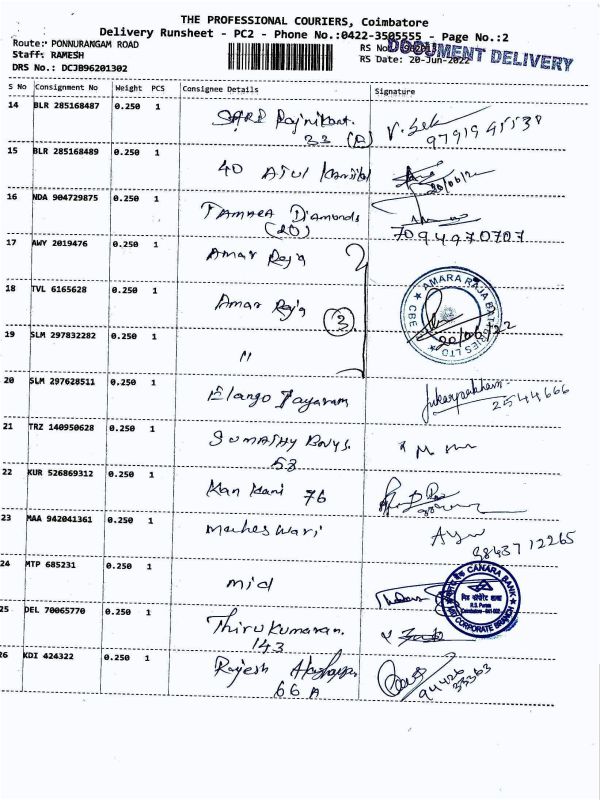 THE PROFESSIONAL COURIERS, Coimbatore
Delivery Runsheet - PC2 - Phone No.:0422-3505555 - Page No.:2
Route: PONNURANGAM ROAD
RS No
DOCUMENT DELIVERY
Staff: RAMESH
RS Date: 20-Jun-2022
DRS No.: DCJB96201302
S No Consignment No Weight PCS Consignee Details Signature
14 BLR 285168487 0.250 1
33
9791945538
15 BLR 285168489 0.250 1 40 Atul
20/06/2
16 NDA 904729875 0.250 1 TAMARA Diamonds
(20) 7094970707
17 AWY 2019476 0.250 1 Amar Raja
18 TVL 6165628 0.250 1 Amar Raja
3
AMARA RAJA BATTERIES LTD CBE
20/06/22
19 SLM 297832282 0.250 1 "
20 SLM 297628511 0.250 1 Elango Jayaram
2544666
21 TRZ 140950628 0.250 1 SUMATHY
53
22 KUR 526869312 0.250 1 Kan Kani 76
23 MAA 942041361 0.250 1 Maheswari
9843712265
24 MTP 685231 0.250 1 mid
CANARA BANK
R.S. Puram
Coimbatore
CORPORATE BRANCH
25 DEL 70065770 0.250 1 Thirukumaran.
143
26 KDI 424322 0.250 1 Rajesh
66 A
94426
33363